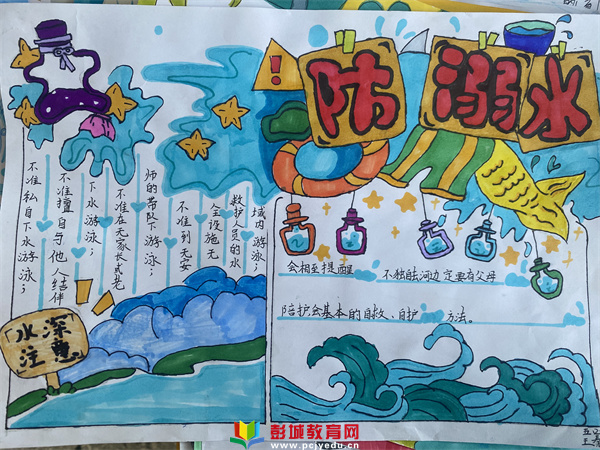 防溺水
不准私自下水游泳；
不准擅自与他人结伴
下水游泳；
不准在无家长或老
师的带队下游泳；
不准到无安
全设施无
救护人员的水
域内游泳；
「水深」
注意
会相互提醒 不独自去河边定要有父母
陪护会基本的自救、自护 方法。
彭城教育网
www.pcjyedu.cn